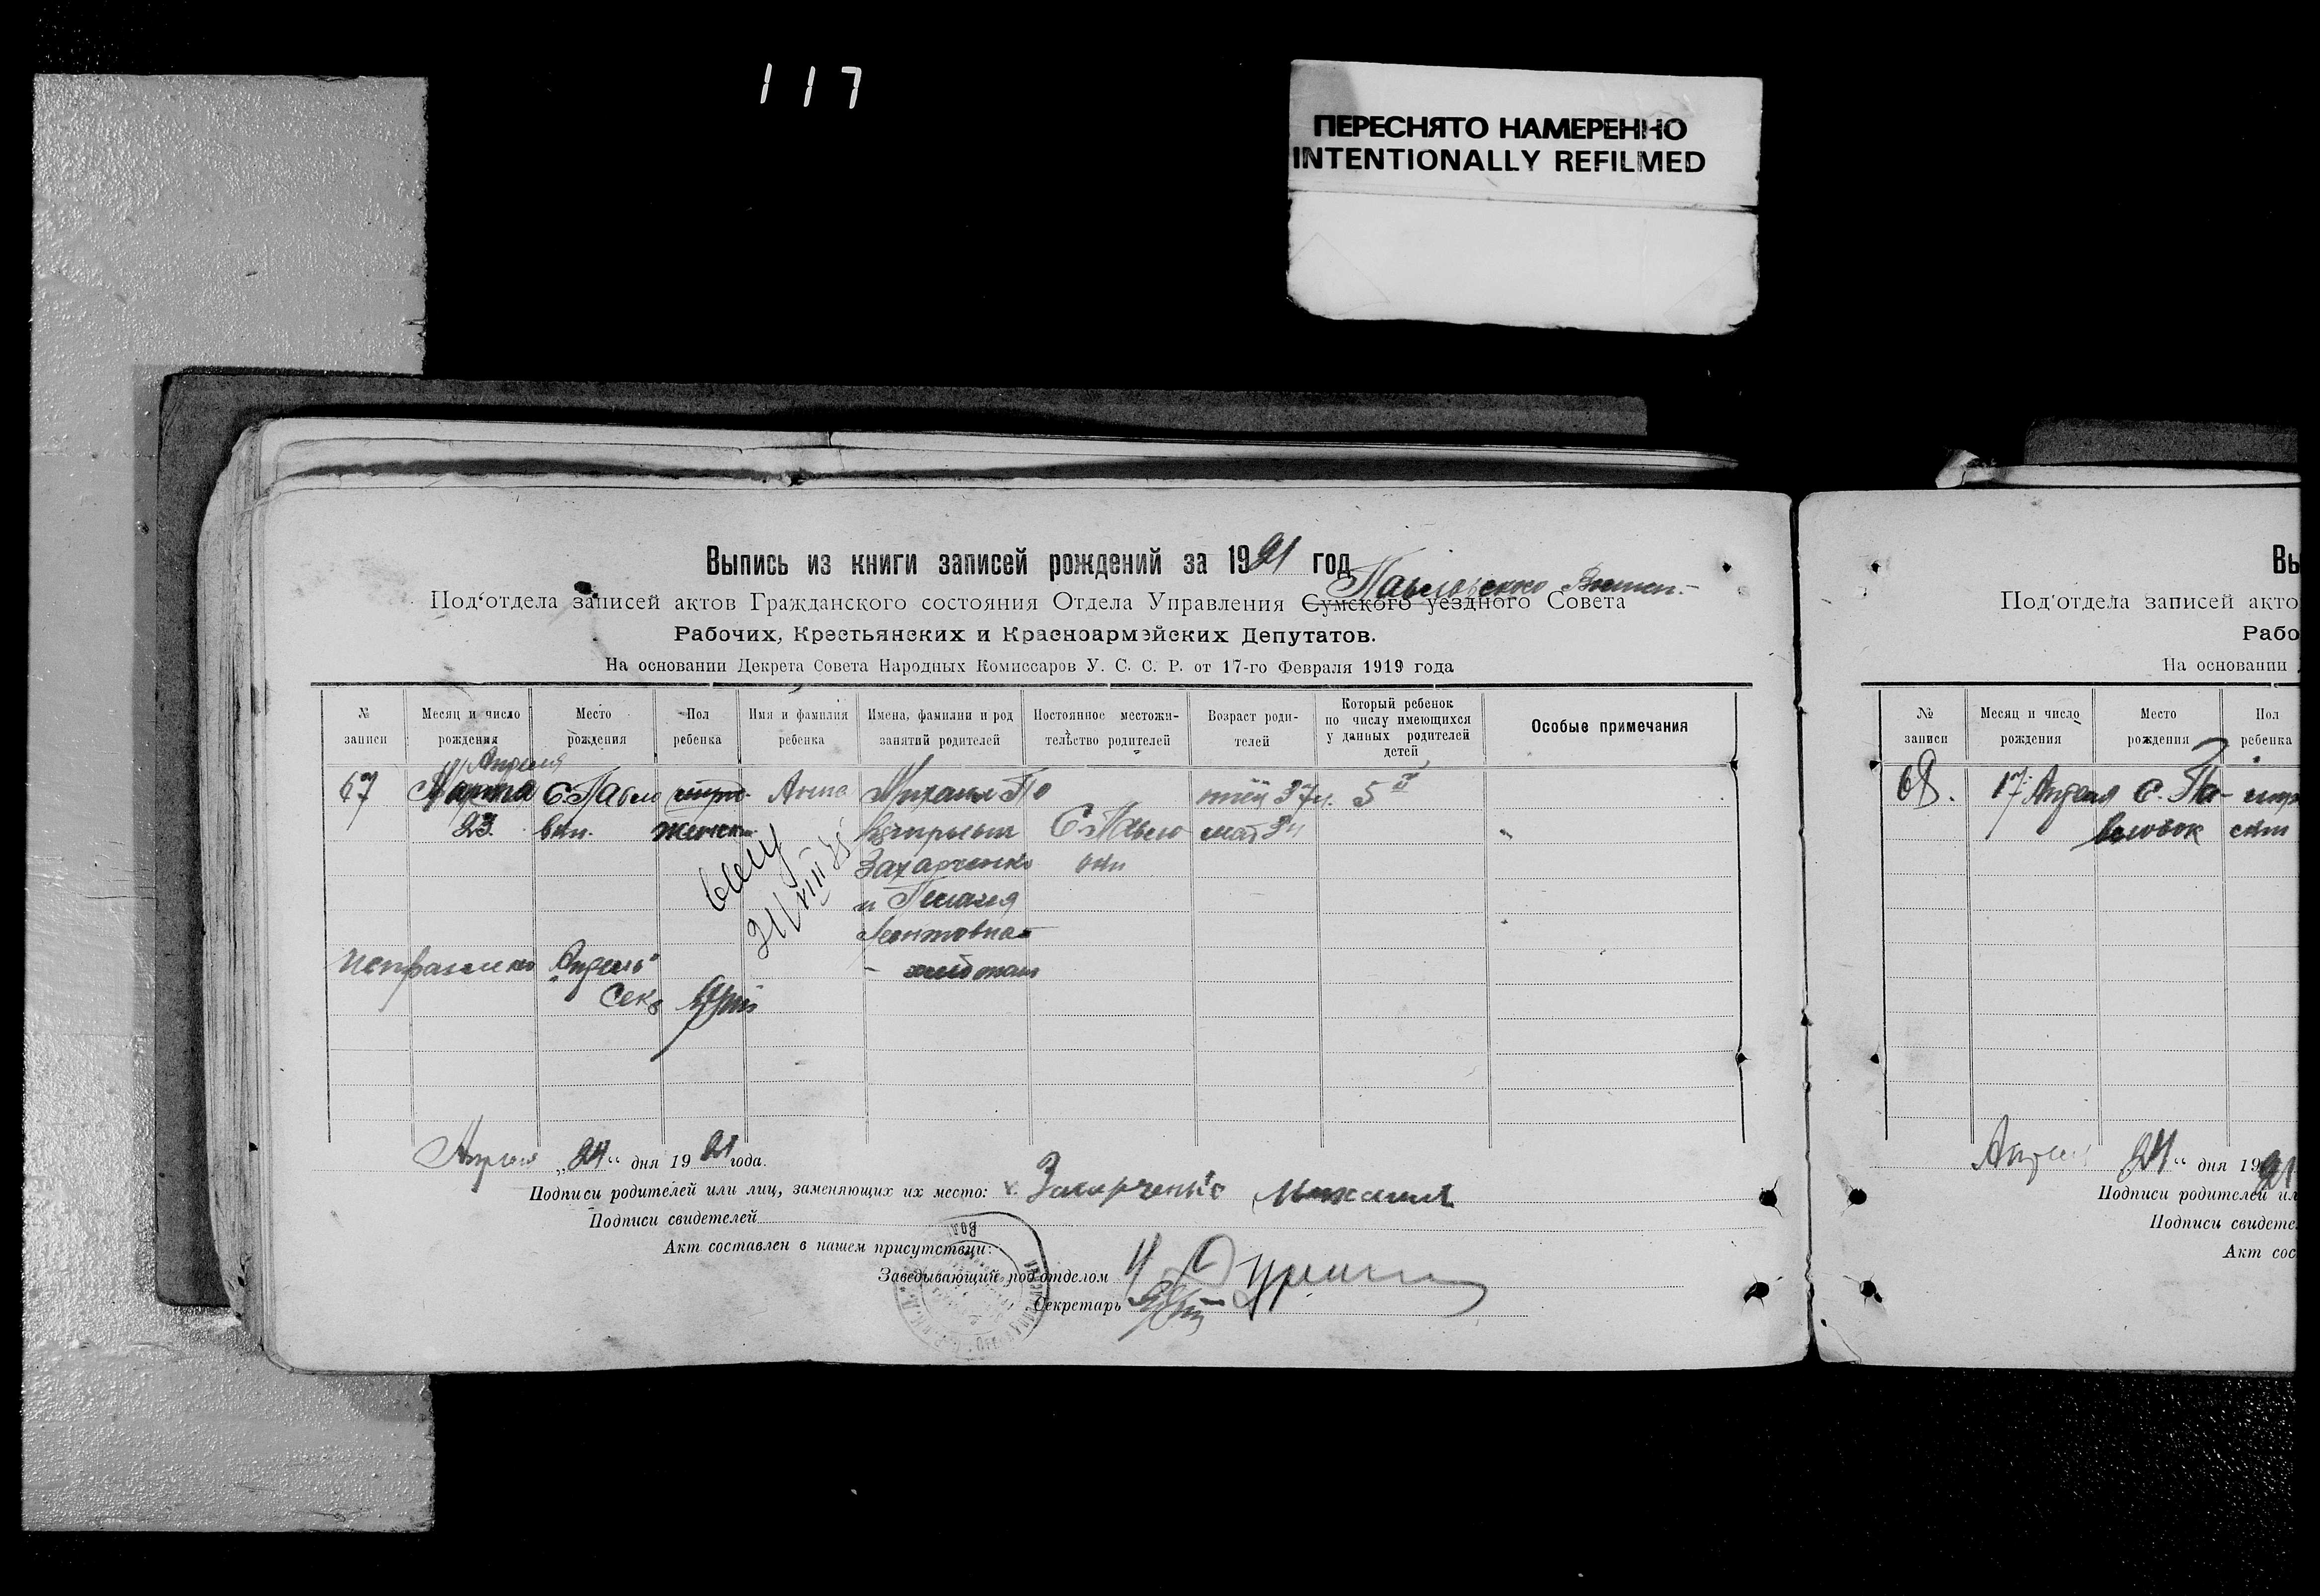 117
ПЕРЕСНЯТО НАМЕРЕННО
INTENTIONALLY REFILMED
Выпись из книги записей рождений за 1921 год
Павловского
Под‘отдела записей актов Гражданского состояния Отдела Управления Сумского уездного Совета
Рабочих, Крестьянских и Красноармэйских Депутатов.
На основании Декрета Совета Народных Комиссаров У. С. С. Р. от 17-го Февраля 1919 года
№ записи
Месяц и число рождения
Место рождения
Пол ребенка
Имя и фамилия ребенка
Имена, фамилии и род занятий родителей
Постоянное местожительство родителей
Возраст родителей
Который ребенок по числу имеющихся у данных родителей детей
Особые примечания
Апреля
67 Марта С. Павло Анна Михаил По 37 5
23 вки. женск. С. Павло мат 34
Захарченко вки
и
Леонтовна
Исправлено Апрель
Секр
Апреля „24“ дня 1921 года.
Подписи родителей или лиц, заменяющих их место: Захарченко Михаил
Подписи свидетелей
Акт составлен в нашем присутствии:
Заведывающий под‘отделом
Секретарь
Вы
Под‘отдела записей акто
Рабо
На основании
№ записи
Месяц и число рождения
Место рождения
Пол ребенка
68. 17 Апреля С. Па-
вловок
Апреля 24“ дня 1921
Подписи родителей ил
Подписи свидете
Акт сос